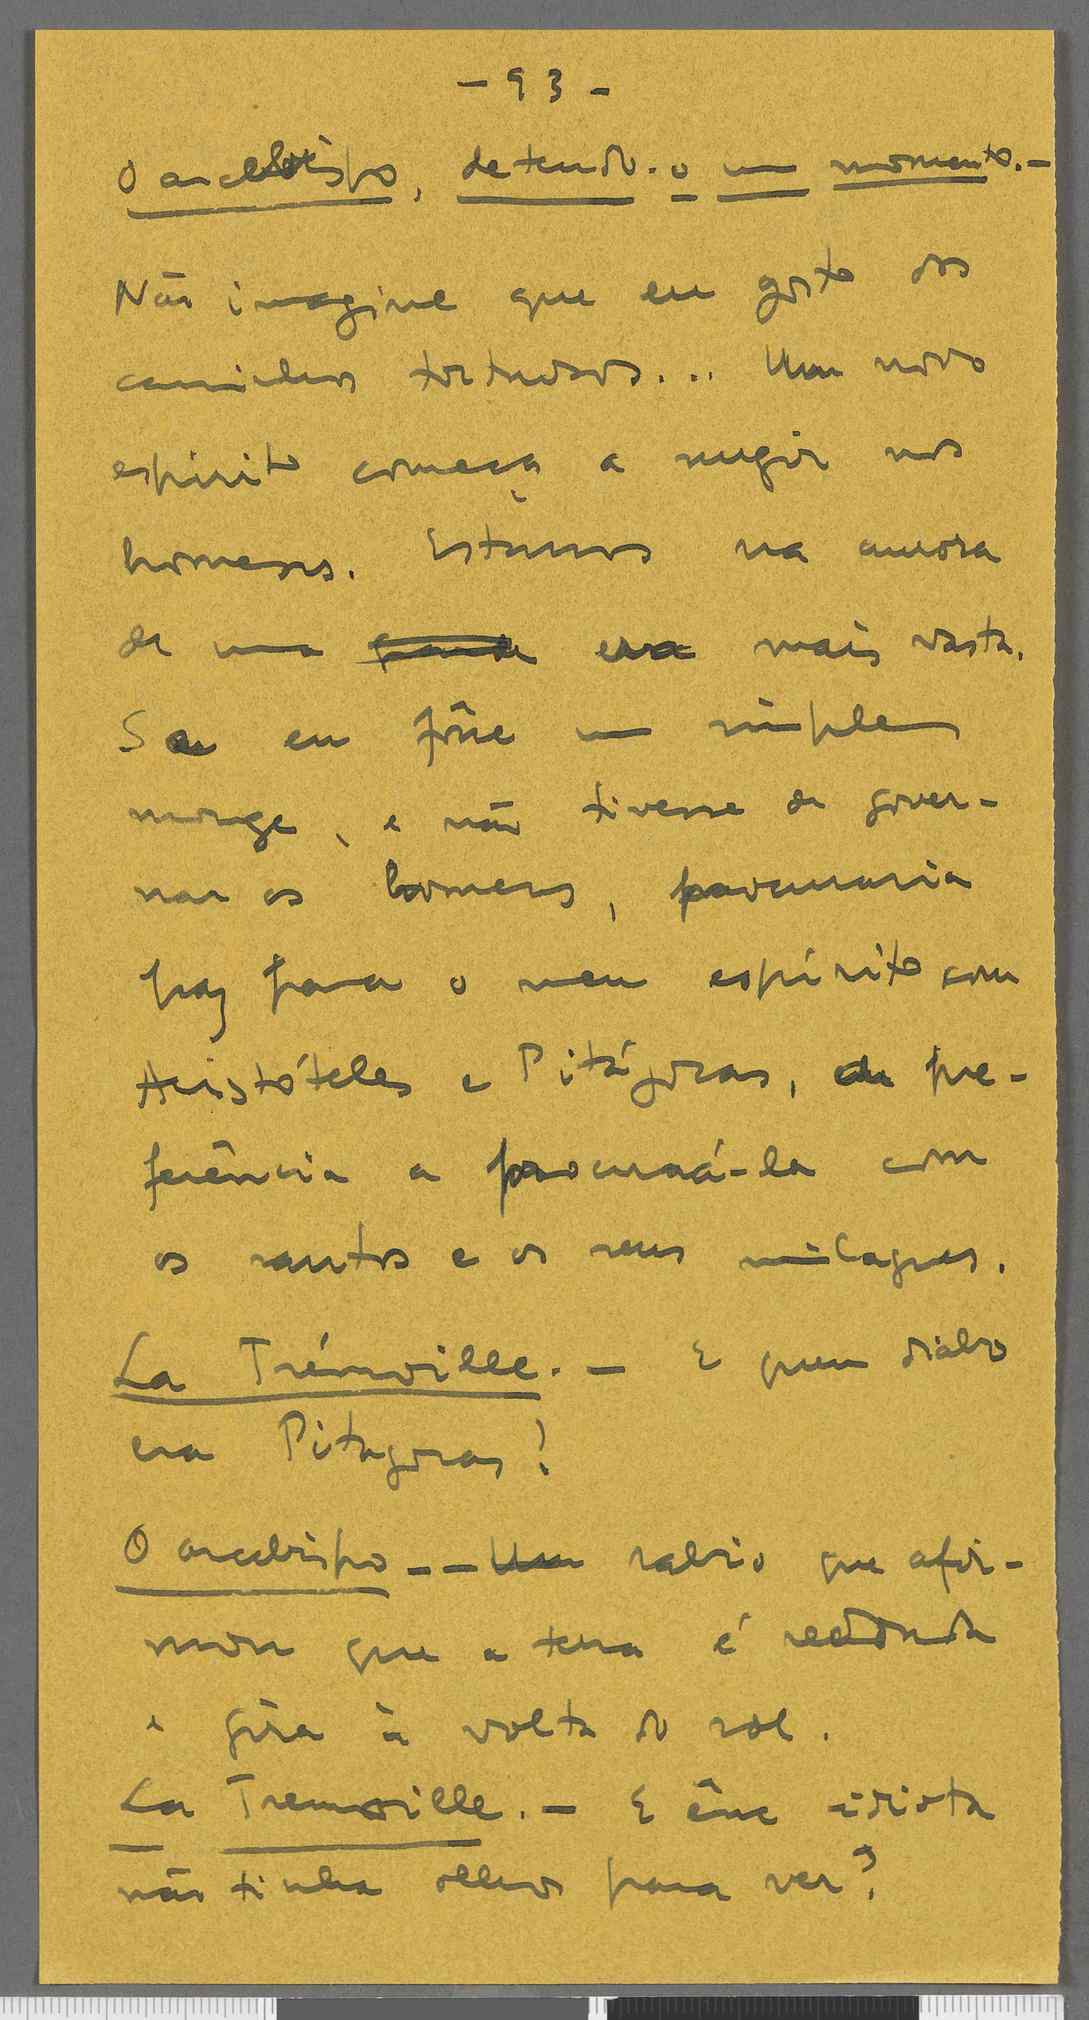 - 93 -
O arcebispo, detendo-o um momento. -
Não imagine que eu gosto dos
caminhos tortuosos... Um novo
espírito começa a surgir nos
homens. Estamos na aurora
de uma era mais vasta.
Se eu fôsse um simples
monge, e não tivesse de gover-
nar os homens, procuraria
paz para o meu espírito com
Aristóteles e Pitágoras, de pre-
ferência a procurá-la com
os santos e os seus milagres.
La Trémoille. - E quem diabo
era Pitagoras?
O arcebispo - - Um sabio que afir-
mou que a terra é redonda
e gira à volta do sol.
La Tremoille. - E êsse idiota
não tinha olhos para ver?